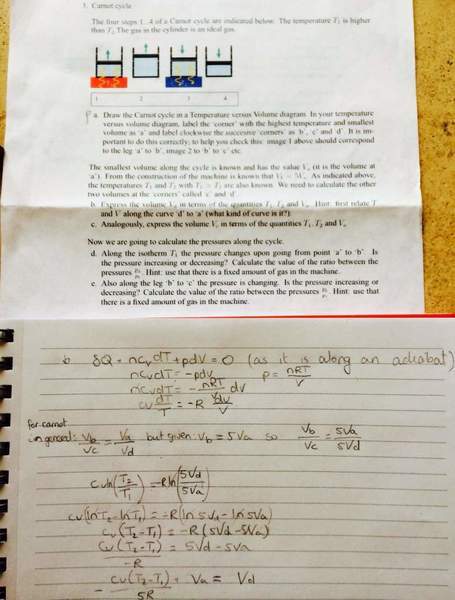 1. Carnot cycle
The four steps 1...4 of a Carnot cycle are indicated below. The temperature T₁ is higher
than T₂ The gas in the cylinder is an ideal gas.
1 2 3 4
a. Draw the Carnot cycle in a Temperature versus Volume diagram. In your temperature
versus volume diagram, label the 'corner' with the highest temperature and smallest
volume as 'a' and label clockwise the successive 'corners' as 'b', 'c' and 'd'. It is im-
portant to do this correctly; to help you check this: image 1 above should correspond
to the leg 'a' to 'b', image 2 to 'b' to 'c' etc.
The smallest volume along the cycle is known and has the value Vₐ (it is the volume at
'a'). From the construction of the machine is known that As indicated above,
the temperatures T₁ and T₂ with T₁ > T₂ are also known. We need to calculate the other
two volumes at the 'corners' called 'c' and 'd'.
b. Express the volume V_d in terms of the quantities T₁, T₂ and Vₐ. Hint: first relate T
and V along the curve 'd' to 'a' (what kind of curve is it?)
c. Analogously, express the volume V_c in terms of the quantities T₁, T₂ and Vₐ
Now we are going to calculate the pressures along the cycle.
d. Along the isotherm T₁ the pressure changes upon going from point 'a' to 'b'. Is
the pressure increasing or decreasing? Calculate the value of the ratio between the
pressures. Hint: use that there is a fixed amount of gas in the machine.
e. Also along the leg 'b' to 'c' the pressure is changing. Is the pressure increasing or
decreasing? Calculate the value of the ratio between the pressures. Hint: use that
there is a fixed amount of gas in the machine.
b δQ = ncᵥdT + pdV = 0 (as it is along an adiabat)
ncᵥdT = -pdV p = nRT/V
ncᵥdT = -nRT/V dV
cᵥ dT/T = -R dV/V
for carnot
in general: V_b/V_c = Vₐ/V_d but given: V_b = 5Vₐ so V_b/V_c = 5Vₐ/5V_d
cᵥln(T₂/T₁) = -Rln(5V_d/5Vₐ)
cᵥ(lnT₂-lnT₁) = -R(ln5V_d - ln5Vₐ)
cᵥ(T₂-T₁) = -R(5V_d-5Vₐ)
cᵥ(T₂-T₁)/-R = 5V_d - 5Vₐ
-cᵥ(T₂-T₁)/5R + Vₐ = V_d